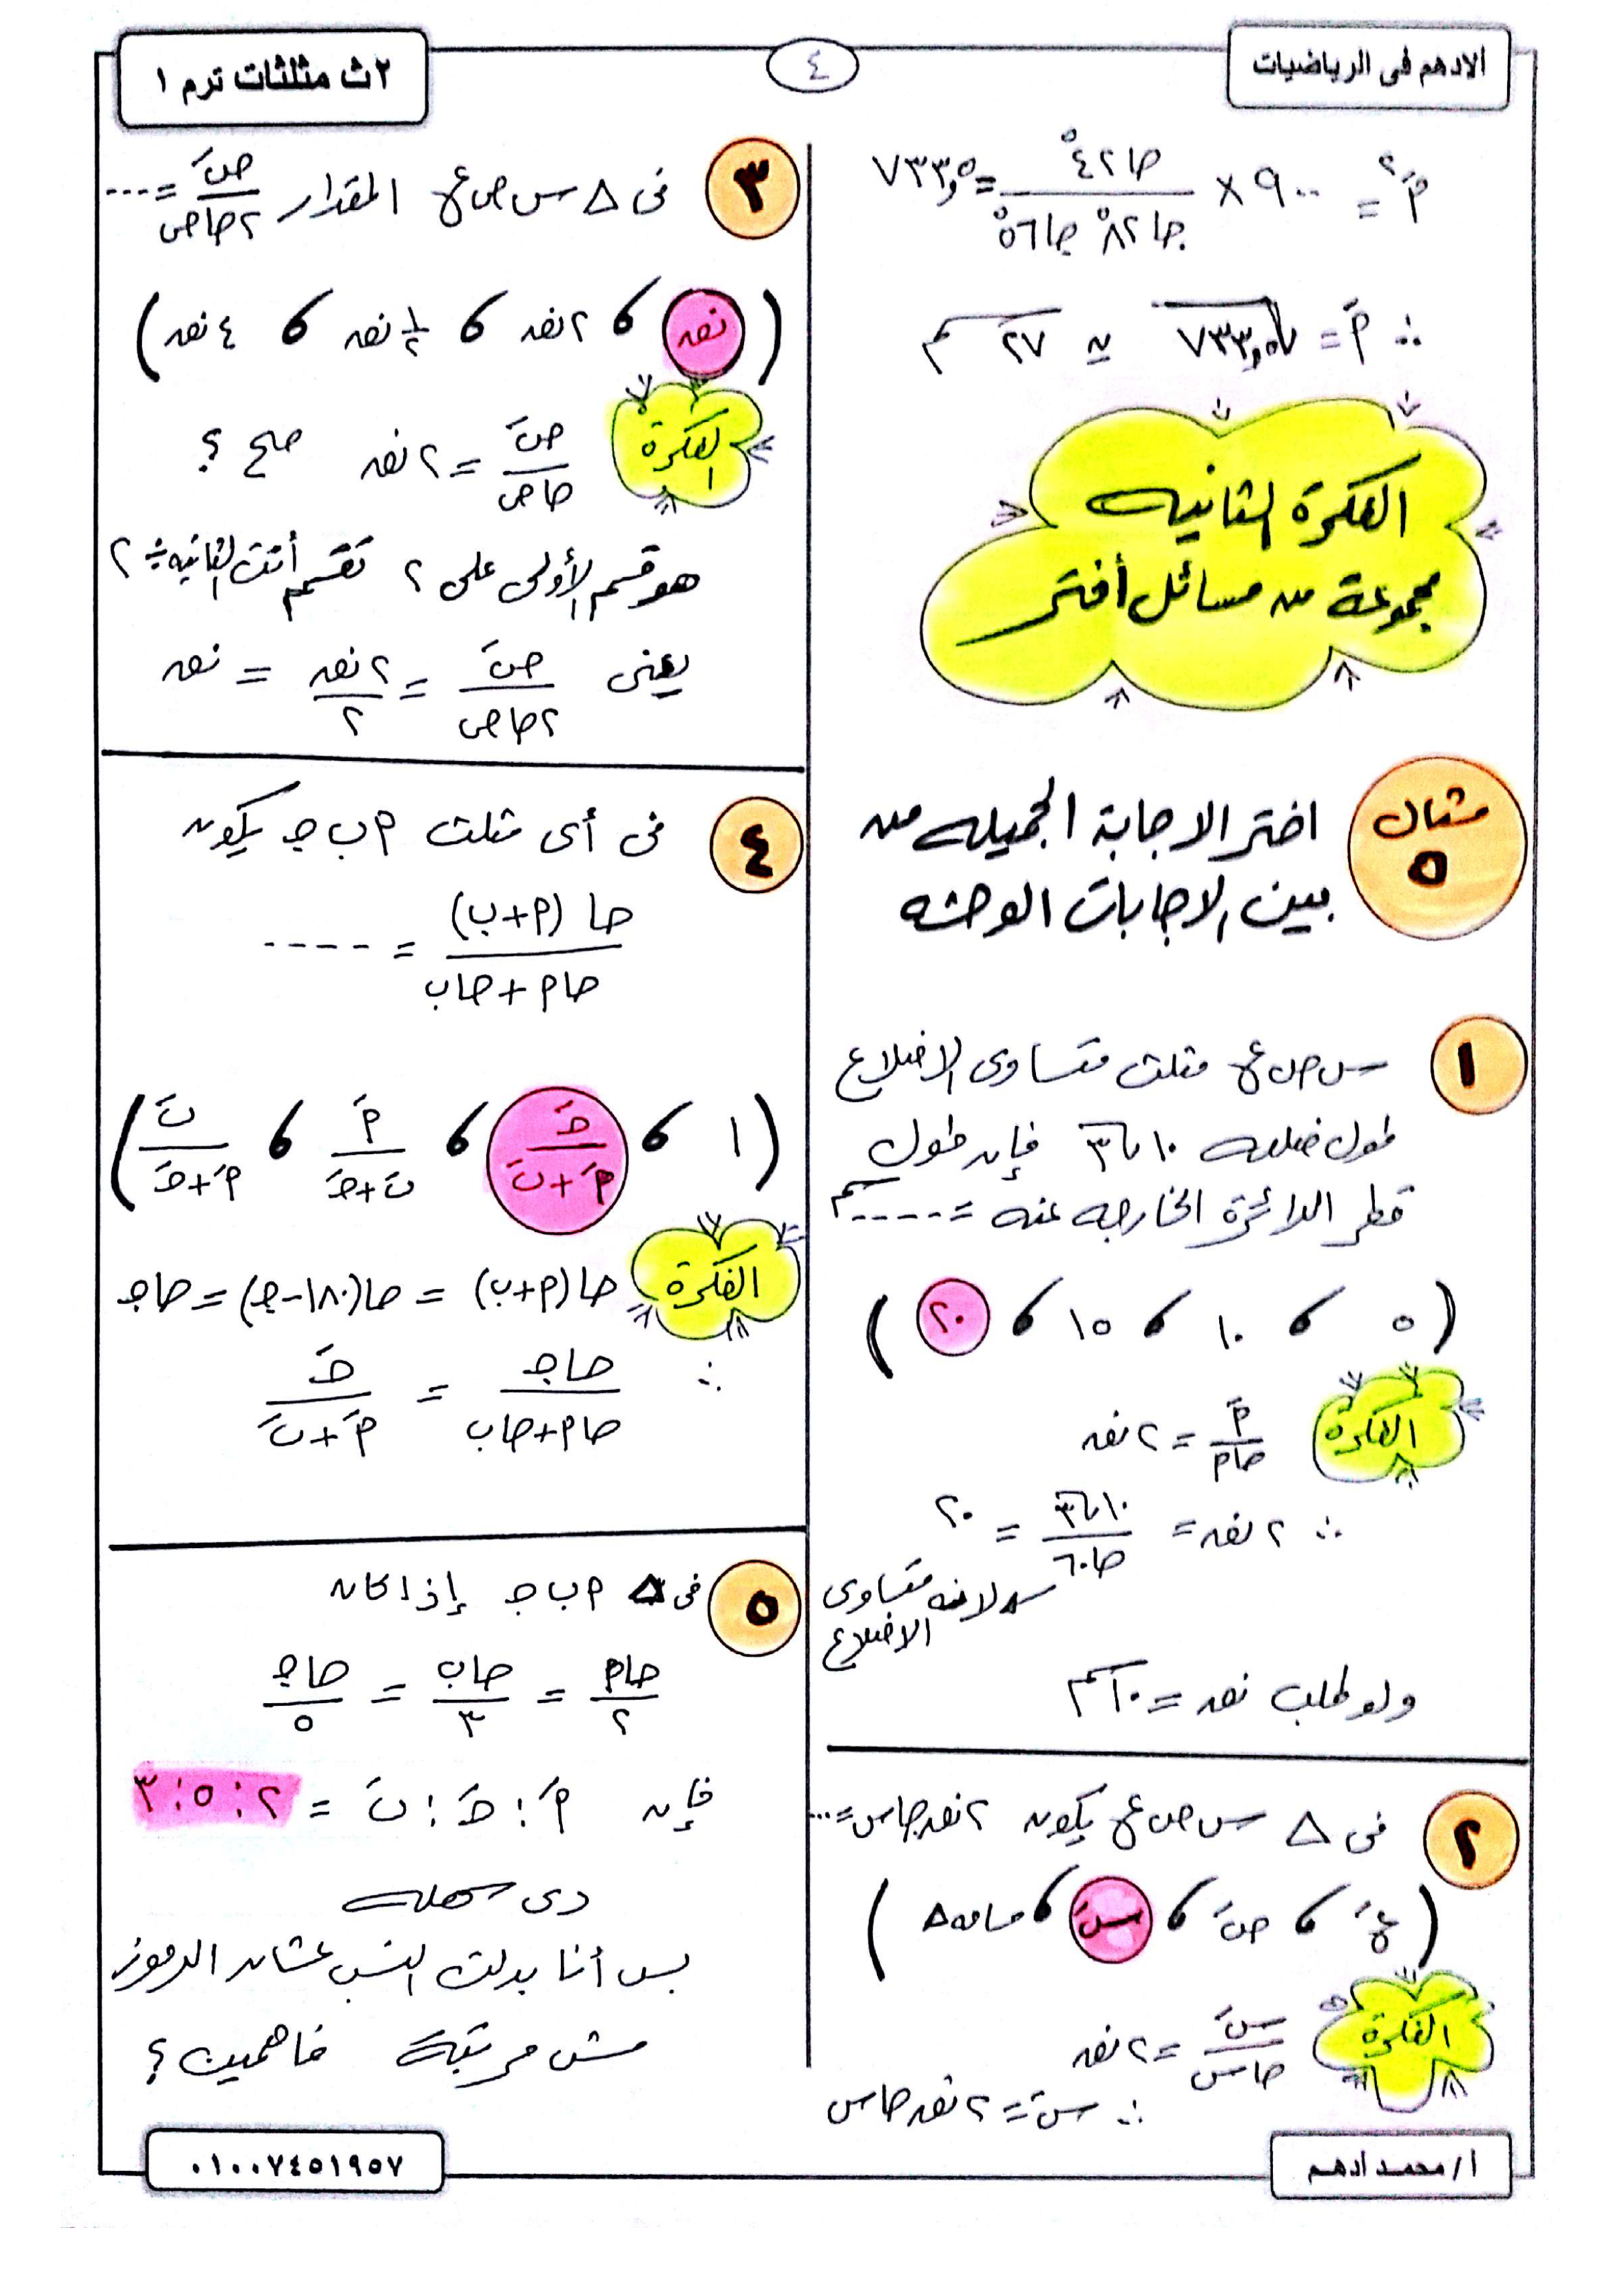 الادهم فى الرياضيات
٤
٢ث مثلثات ترم ١
م́² = ٩٠٠ × حا٤٢° / حا٨٢° حا٥٦° = ٧٣٣,٥
∴ م́ = √٧٣٣,٥ ≃ ٢٧ سم
الفكرة الثانيه
مجموعة من مسائل أختر
مثال ٥
اختر الاجابة الجميله من
بين الاجابات الوحشه
١
س ص ع مثلث متساوى الاضلاع
طول ضلعه ١٠√٣ فإن طول
قطر الدائرة الخارجه عنه = ----- سم
( ٥ ، ١٠ ، ١٥ ، ٢٠ )
الفكرة
م́ / حام = ٢نق
∴ ٢نق = ١٠√٣ / حا٦٠ = ٢٠
لانه متساوى
الاضلاع
ولو طلب نق = ١٠سم
٢
فى △ س ص ع يكون ٢نق حاس = ...
( ع́ ، ص́ ، س́ ، مساحه△ )
الفكرة
س́ / حاس = ٢نق
∴ س́ = ٢نق حاس
٣
فى △ س ص ع المقدار ص́ / ٢حاص = ...
( نق ، ٢نق ، ½ نق ، ٤نق )
الفكرة
ص́ / حاص = ٢نق صح ؟
هو قسم الأولى على ٢ تقسم أنت الثانيه ÷ ٢
يعنى ص́ / ٢حاص = ٢نق / ٢ = نق
٤
فى أى مثلث م ب ج يكون
حا (م+ب) / حام + حاب = ----
( ١ ، ج́ / م́+ب́ ، م́ / ب́+ج́ ، ب́ / م́+ج́ )
الفكرة
حا(م+ب) = حا(١٨٠-ج) = حاج
∴ حاج / حام+حاب = ج́ / م́+ب́
٥
فى △ م ب ج إذا كان
حام / ٢ = حاب / ٣ = حاج / ٥
فإن م́ : ج́ : ب́ = ٢ : ٥ : ٣
دى سهله
بس أنا بدلت النسب عشان الرموز
مش مرتبة فاهمين ؟
أ/ محمد ادهم
٠١٠٠٧٤٥١٩٥٧